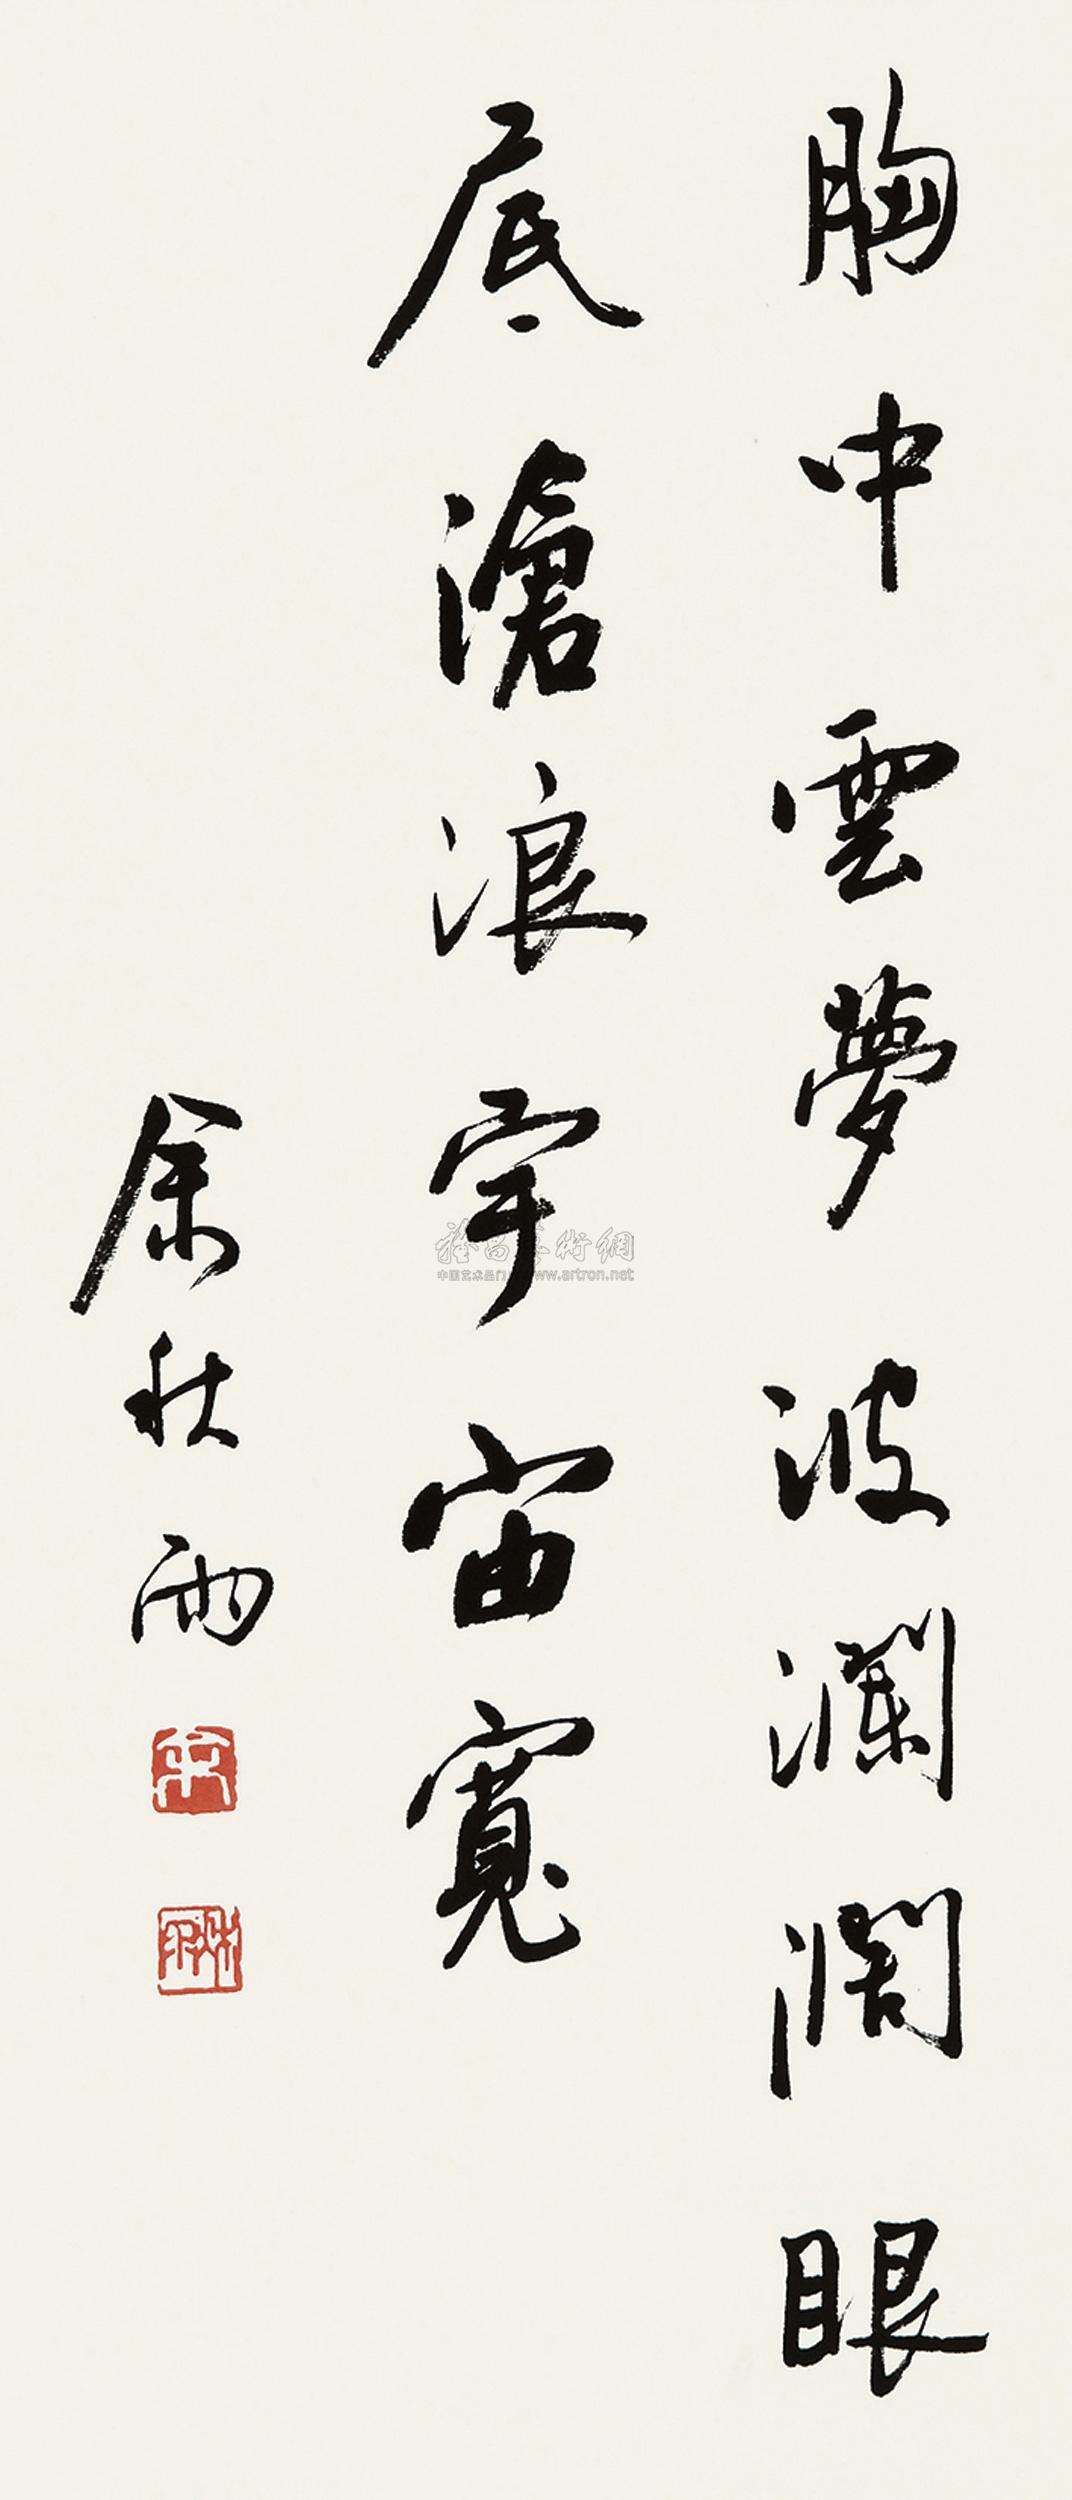 胸中雲夢波瀾闊眼
底滄浪宇宙寬
余秋雨
雅昌藝術網
中国艺术品门 www.artron.net